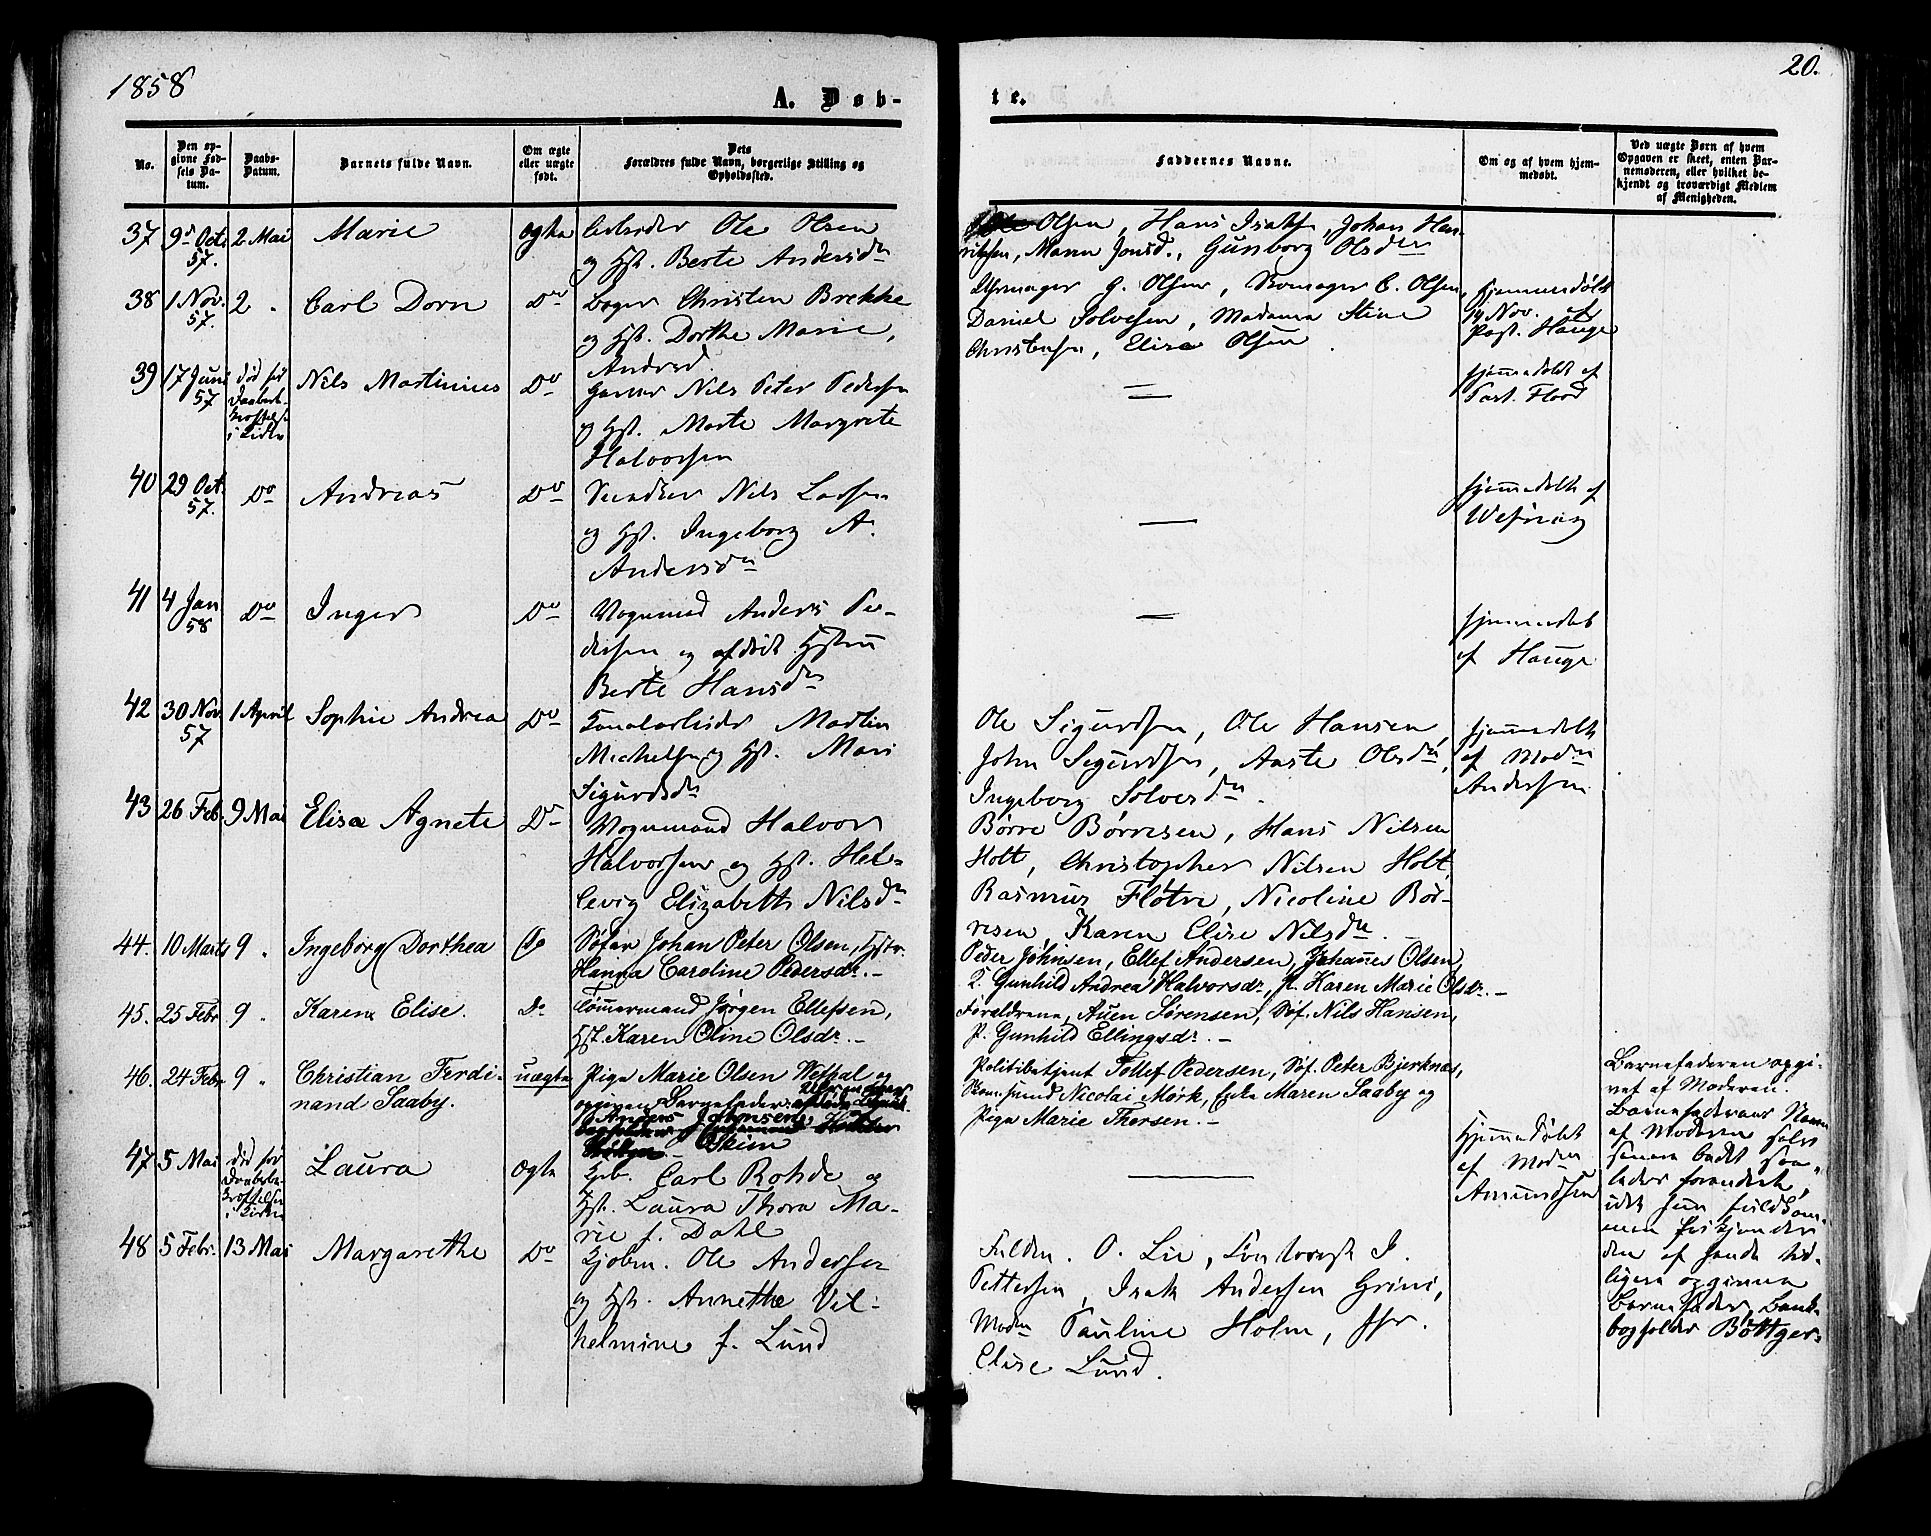 1858
A. Døb-
te.
20.
No.
Den op-
givne Fød-
sels Da-
tum.
Daabs-
Datum.
Barnets fulde Navn.
Om ægte
eller uægte
født.
Dets
Forældres fulde Navn, borgerlige Stilling og
Opholdssted.
Faddernes Navne.
Om og af hvem hjem-
medøbt.
Ved uægte Børn af hvem
Opgaven er skeet, enten Bar-
nemoderen, eller hvilket be-
kjendt og troværdigt Medlem
af Menigheden.
37 9 Oct. 57. 2 Mai Marie ægte Ole Olsen
og Hst. Berte Andersdr
Olsen, Hans Isaks., Johan Hen-
riksen, Maren Jonsd., Gunborg Olsdr
38 1 Nov. 57. 2 " Carl Dorn Do Bager Christen Brekke
og Hst. Dorthe Marie
Andersd.
Uhrmager G. Olsen, Skomager C. Olsen,
Daniel Solvesen, Madame Stine
Christensen, Elise Olsen.
hjemmedøbt
14 Nov. af
Past. Hauge
39 17 Juni 57 død før
Daabsbe-
kræftelse
i Kirke
Nils Martinius Do Garver Nils Peter Pedersen
og Hst. Marte Margrete
Halvorsen
—
hjemmedøbt af
Past. Flood
40 29 Oct. 57. Do Andreas Do Nils Larsen
og Hst. Ingeborg A.
Andersdr
—
hjemmedøbt af
41 4 Jan 58 Do Inger Do Vognmand Anders Pe-
dersen og afdøde Hustru
Berte Hansdr
—
hjemmedøbt
af Hauge
42 30 Nov. 57 1 April Sophie Andrea Do Kanalarbeider Martin
Michelsen og Hst. Mari
Sigurdsdr
Ole Sigurdsen, Ole Hansen,
John Sigurdsen, Aaste Olsdr,
Ingeborg Solvesdr.
hjemmedøbt
af Modn
Andersen
43 26 Feb. 9 Mai Elise Agnete Do Vognmand Halvor
Halvorsen og Hst. Hel-
levig Elizabeth Nilsdr
Børre Børresen, Hans Nilsen
Holt, Christopher Nilsen Holt,
Rasmus Fløtre, Nicoline Bør-
resen, Karen Elise Nilsdr.
44. 10 Marts 9 " Ingeborg Dorthea Do Søfar. Johan Peter Olsen, Hstr.
Hanna Caroline Pedersdr.-
Peder Johnsen, Ellef Andersen, Johannes Olsen,
K. Gunhild Andrea Halvorsdr., P. Karen Marie Olsdr.-
45. 25 Febr. 9 " Karen Elise. Do Tømmermand Jørgen Ellefsen,
Hst. Karen Oline Olsdr.-
Forældrene, Auen Sørensen, Søf. Nils Hansen,
P. Gunhild Ellingsdr.-
46. 24 Febr. 9 " Christian Ferdi-
nand Saaby.
uægte Pige Marie Olsen Vethal og
opgiven Barnefader:
Anders Johnsen
Politibetjent Tollef Pedersen, Søf. Peter Bjerknæs,
Nicolai Mørk, Enke Maren Saaby og
Pige Marie Thorsen.-
Barnefaderen opgi-
vet af Moderen.
Barnefaderens Navn
af Moderen selv
senere bedt saa-
ledes forandret,
idet hun fuldkom-
men frikjender
den af hende tid-
ligere opgivne
Barnefader, Bank-
bogholder Bøttger.
47 5 Mai død før
Daabsbe-
kræftelsen
i Kirke
Laura ægte Carl Rohde og
Hst. Laura Thora Ma-
rie f. Dahl
—
Hjemmedøbt
af Modn
Amundsen
48 5 Febr. 13 Mai Margarethe Do Kjøbm. Ole Andersen
og Hst. Annethe Vil-
helmine f. Lund
O. Lie, I.
Pettersen, Isak Andersen Grini,
Modn Pauline Holm,
Elise Lund.